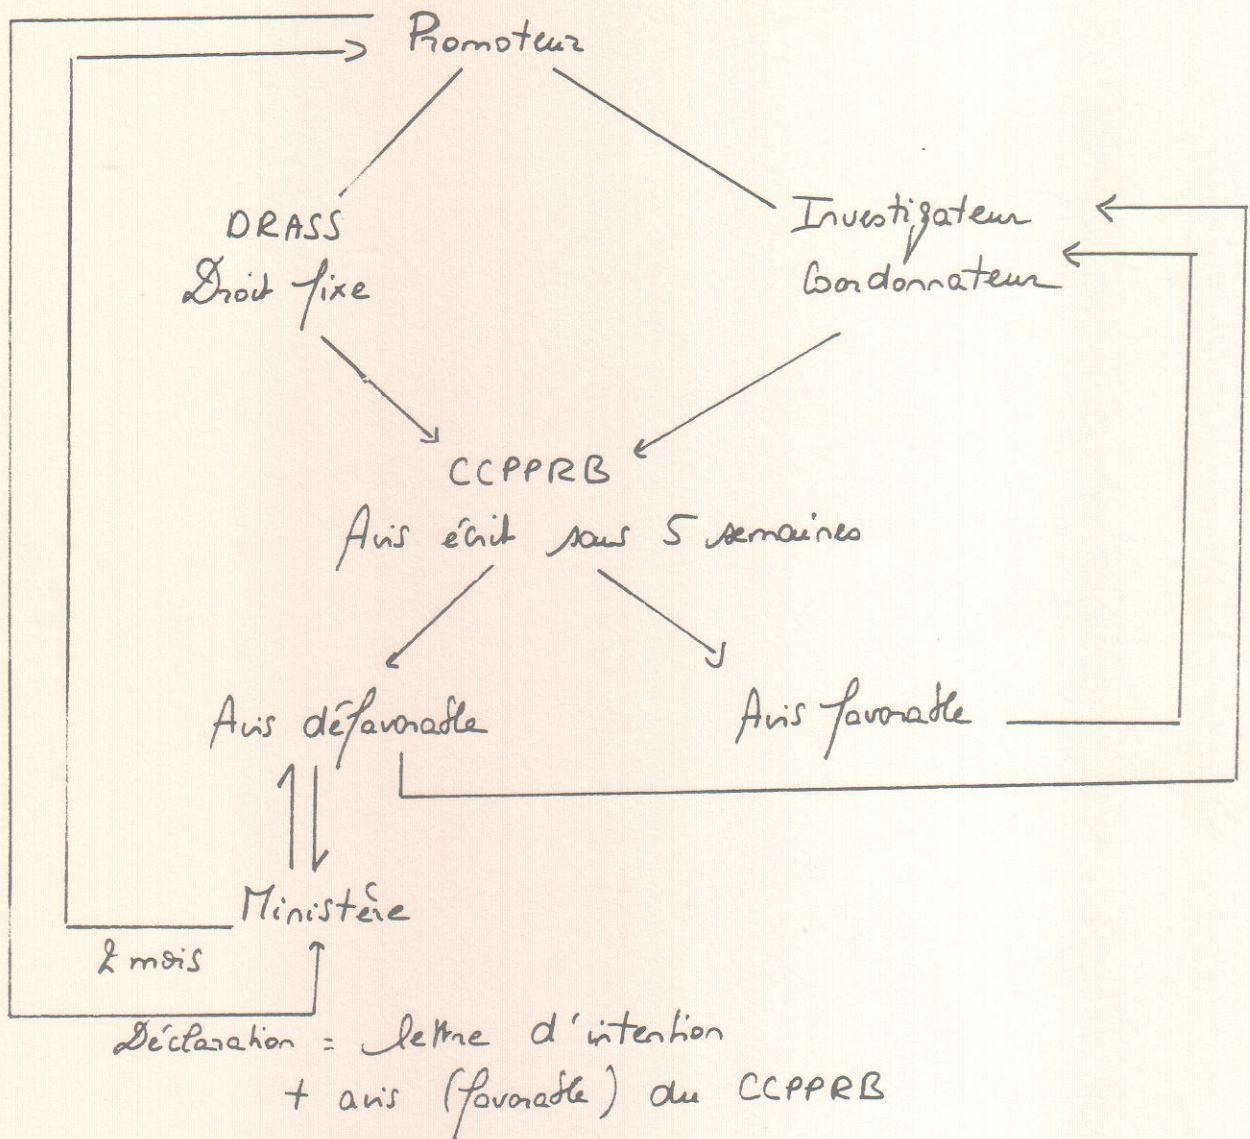 Promoteur
DRASS
Droit fixe
Investigateur
Coordonnateur
CCPPRB
Avis écrit sous 5 semaines
Avis défavorable
Avis favorable
Ministère
2 mois
Déclaration = lettre d'intention
+ avis (favorable) du CCPPRB